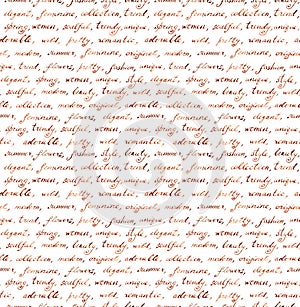 elegant, feminine, collection, trend, elegant, feminine,
spring, women, soulful, modern, beauty, trendy, unique,
adorable, wild, pretty, romantic, adorable, wild,
summer, original, modern,
unique, trend, flowers, pretty, fashion, unique, trend,
elegant, spring, women, unique, style, elegant,
soulful, modern, beauty, trendy, wild, soulful, modern,
adorable, collection, modern, original, adorable, collection,
summer, feminine, flowers, elegant, summer, feminine,
spring, trendy, soulful, women, unique, spring, trendy
adorable, pretty, wild, romantic, adorable, pretty,
summer, flowers, fashion, style, beauty, summer, flowers,
unique, trend, elegant, feminine, collection, trend, elegant,
spring, women, soulful, modern, beauty,
romantic, adorable, wild, pretty, romantic, adorable, wild,
original, modern, summer, original,
unique, trend, flowers, pretty, fashion, unique, trend, flowers,
style, elegant, spring, women, unique, style, elegant, spring,
wild, soulful, modern, beauty, trendy, wild, soulful, modern,
adorable, collection, modern, original, adorable, collection,
summer, feminine, flowers, elegant, summer, feminine,
spring, trendy, soulful, women, unique, spring, trendy
romantic, adorable, pretty, wild, romantic, adorable, pretty,